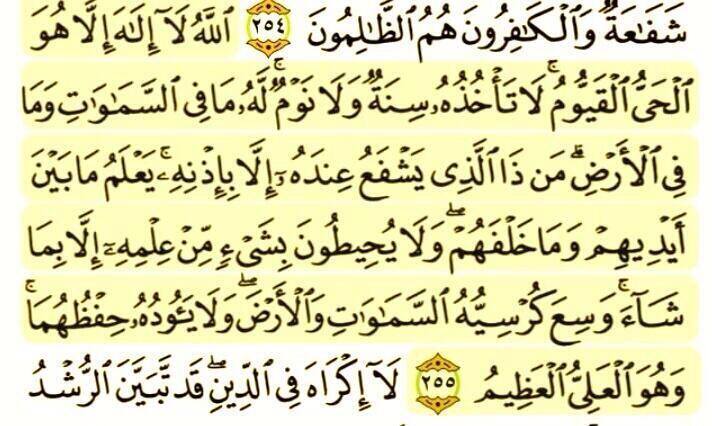 شَفَٰعَةٌ وَٱلْكَٰفِرُونَ هُمُ ٱلظَّٰلِمُونَ ٢٥٤ ٱللَّهُ لَآ إِلَٰهَ إِلَّا هُوَ
ٱلْحَىُّ ٱلْقَيُّومُ ۚ لَا تَأْخُذُهُۥ سِنَةٌ وَلَا نَوْمٌ ۚ لَّهُۥ مَا فِى ٱلسَّمَٰوَٰتِ وَمَا
فِى ٱلْأَرْضِ ۗ مَن ذَا ٱلَّذِى يَشْفَعُ عِندَهُۥٓ إِلَّا بِإِذْنِهِۦ ۚ يَعْلَمُ مَا بَيْنَ
أَيْدِيهِمْ وَمَا خَلْفَهُمْ ۖ وَلَا يُحِيطُونَ بِشَىْءٍ مِّنْ عِلْمِهِۦٓ إِلَّا بِمَا
شَآءَ ۚ وَسِعَ كُرْسِيُّهُ ٱلسَّمَٰوَٰتِ وَٱلْأَرْضَ ۖ وَلَا يَـُٔودُهُۥ حِفْظُهُمَا ۚ
وَهُوَ ٱلْعَلِىُّ ٱلْعَظِيمُ ٢٥٥ لَآ إِكْرَاهَ فِى ٱلدِّينِ ۖ قَد تَّبَيَّنَ ٱلرُّشْدُ